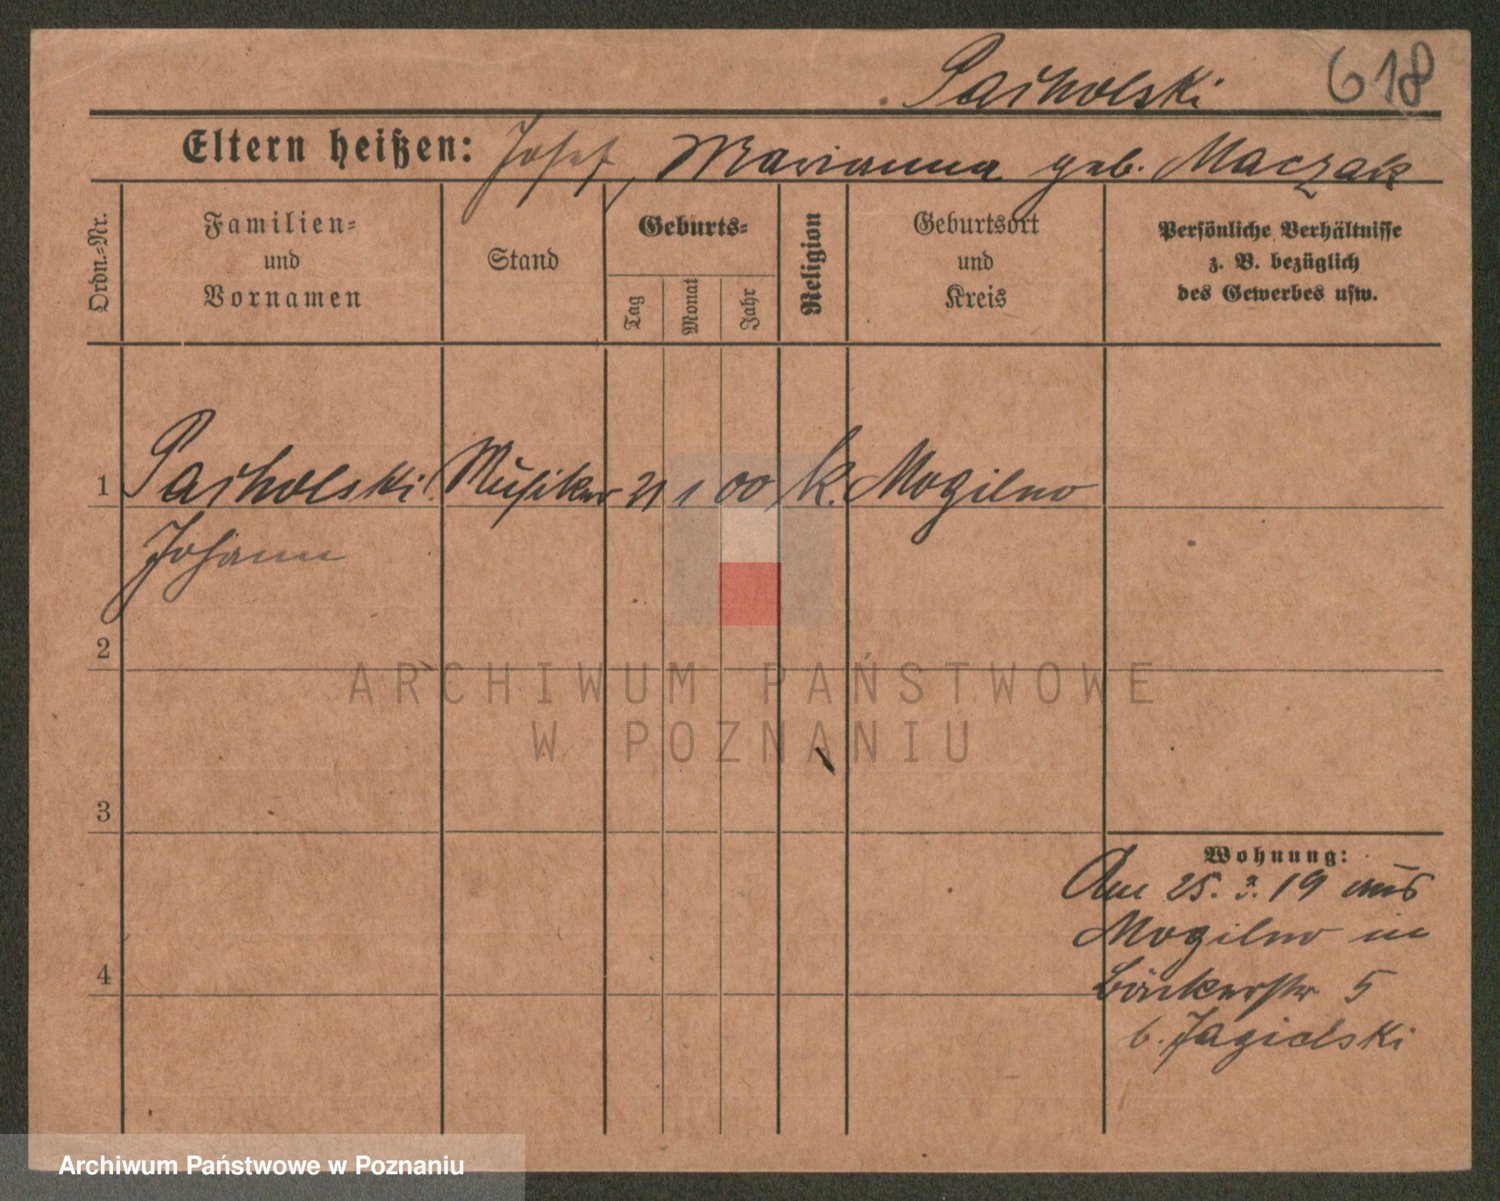 Pacholski 618
Eltern heißen: Josef, Marianna geb. Maczak
Ordn.=Nr.
Familien=
und
Vornamen
Stand
Geburts=
Tag
Monat
Jahr
Religion
Geburtsort
und
Kreis
Persönliche Verhältnisse
z. B. bezüglich
des Gewerbes usw.
1 Pacholski Musiker 21 1 00 k. Mogilno
Johann
2
3
4
Wohnung:
Am 25. 3. 19 aus
Mogilno in
Bäckerstr 5
b. Jagielski
ARCHIWUM PAŃSTWOWE
W POZNANIU
Archiwum Państwowe w Poznaniu